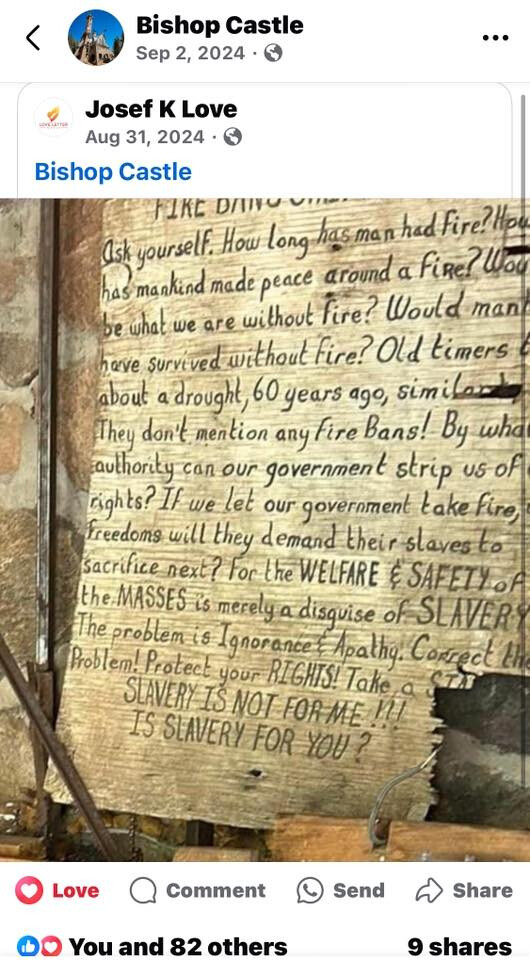 Bishop Castle
Sep 2, 2024 ·
Josef K Love
Aug 31, 2024 ·
Bishop Castle
FIRE BANS
Ask yourself. How long has man had Fire? How
has mankind made peace around a Fire? Wou
be what we are without Fire? Would mank
have survived without Fire? Old timers t
about a drought, 60 years ago, similar
They don't mention any Fire Bans! By wha
authority can our government strip us of
rights? If we let our government take fire,
freedoms will they demand their slaves to
sacrifice next? For the WELFARE & SAFETY of
the MASSES is merely a disguise of SLAVERY
The problem is Ignorance & Apathy. Correct the
Problem! Protect your RIGHTS! Take a
SLAVERY IS NOT FOR ME!!!
IS SLAVERY FOR YOU?
Love Comment Send Share
You and 82 others 9 shares